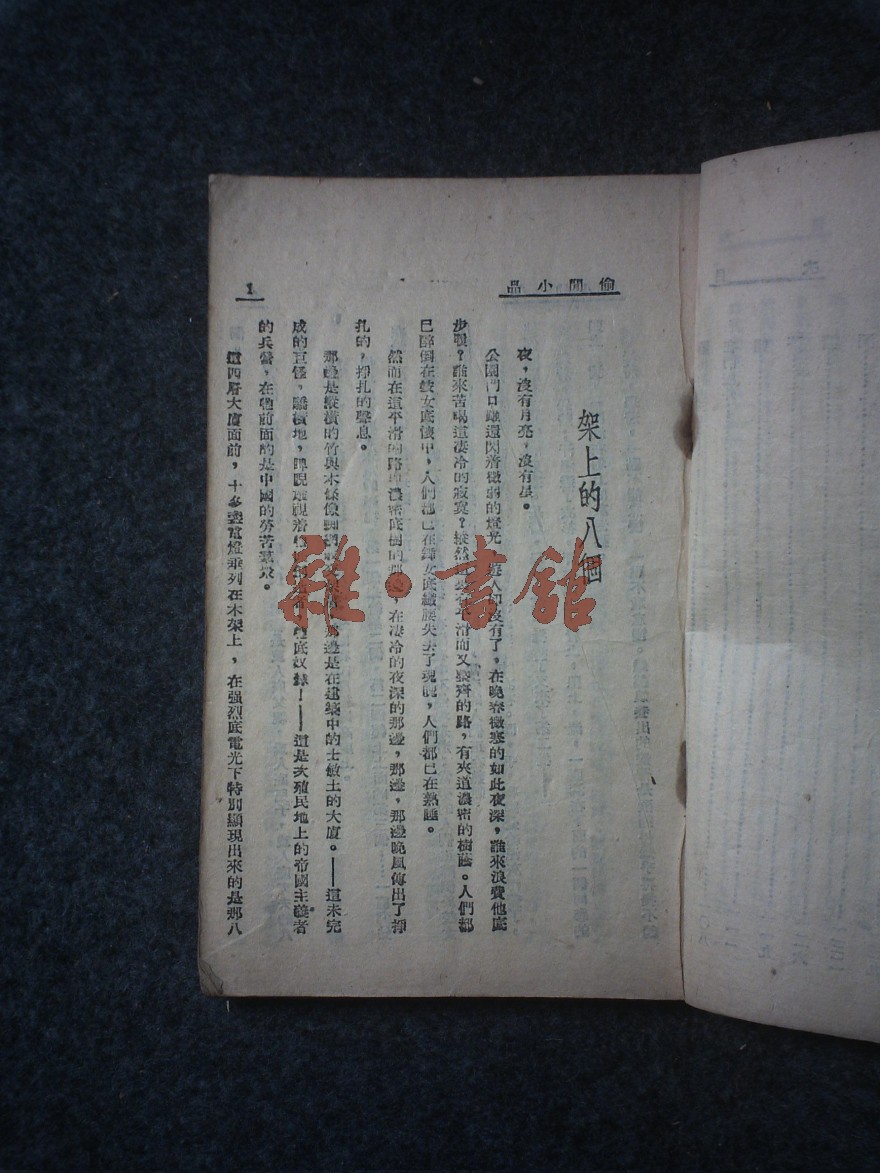 偷閒小品
1
架上的八個
夜，沒有月亮，沒有星。
公園門口雖還閃着微弱的燈光，遊人却沒有了，在晚春微寒的如此夜深，誰來浪費他底
步履？誰來苦喝這凄冷的寂寞？縱然這裏有平滑而又整齊的路，有夾道濃密的樹蔭。人們都
已醉倒在妓女底懷中，人們都已在舞女底纖腰失去了魂魄，人們都已在熟睡。
然而在這平滑的路與濃密底樹的那邊，在凄冷的夜深的那邊，那邊晚風傳出了掙
扎的，掙扎的聲息。
那邊是縱橫的竹與木條像蜘蛛 那邊是在建築中的士敏土的大廈。——這未完
成的巨怪，驕橫地，睥睨環視着 底奴隸！——這是次殖民地上的帝國主義者
的兵營，在牠前面的是中國的勞苦羣衆。
這四層大廈面前，十多盞電燈垂列在木架上，在強烈底電光下特別顯現出來的是那八
雜·書館